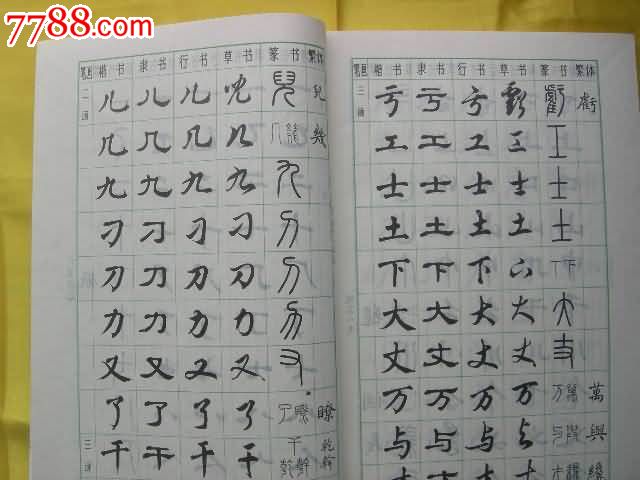 7788.com
笔画 楷书 隶书 行书 草书 篆书 繁体
二画
儿 儿 儿 儿 兒 兒
几 几 几 几 几 幾
九 九 九 九 九
刁 刁 刁 刁 刁
刀 刀 刀 刀 刀
力 力 力 力 力
又 又 又 又 又
了 了 了 了 了 瞭 瞭
三画
干 干 干 干 干 乾 幹 乾 幹
笔画 楷书 隶书 行书 草书 篆书 繁体
三画
亏 亏 亏 虧 虧 虧
工 工 工 工 工
士 士 士 士 士
土 土 土 土 土
下 下 下 下 下
大 大 大 大 大
丈 丈 丈 丈 丈
万 万 万 万 万 萬 萬
与 与 与 与 与 與 與